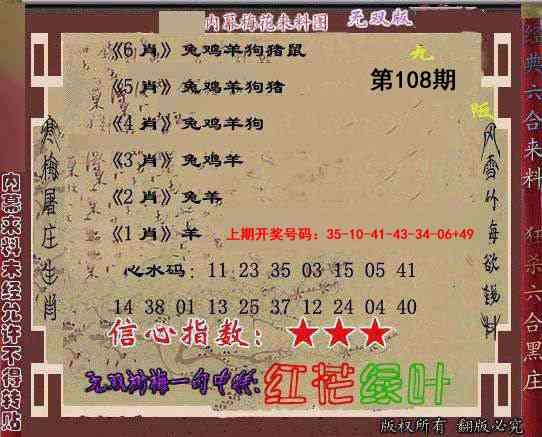 内幕梅花来料图 无双版
《6肖》兔鸡羊狗猪鼠
九
《5肖》兔鸡羊狗猪
第108期
《4肖》兔鸡羊狗
《3肖》兔鸡羊
《2肖》兔羊
《1肖》羊
上期开奖号码：35-10-41-43-34-06+49
心水码：11 23 35 03 15 05 41
14 38 01 13 25 37 12 24 04 40
信心指数：★★★
红花绿叶
版权所有 翻版必究
内幕来料未经允许不得转贴
寒梅屠庄生肖
经典六合来料 狂杀六合黑庄